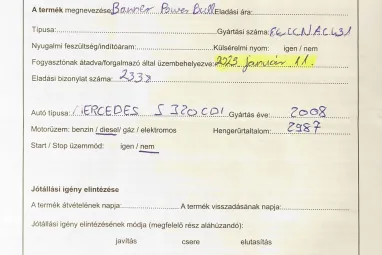 A termék megnevezése: Banner Power Bull Eladási ára:
Típusa: Gyártási száma:
Nyugalmi feszültség/indítóáram: Külsérelmi nyom: igen / nem
Fogyasztónak átadva/forgalmazó által üzembehelyezve: 2025 Január 11.
Eladási bizonylat száma: 2338
Autó típusa: MERCEDES S 320 CDI Gyártás éve: 2008
Motorüzem: benzin / diesel/ gáz / elektromos Hengerűrtartalom: 2987
Start / Stop üzemmód: igen / nem
Jótállási igény elintézése
A termék átvételének napja: A termék visszadásának napja:
Jótállási igény elintézésének módja (megfelelő rész aláhúzandó):
javítás csere elutasítás